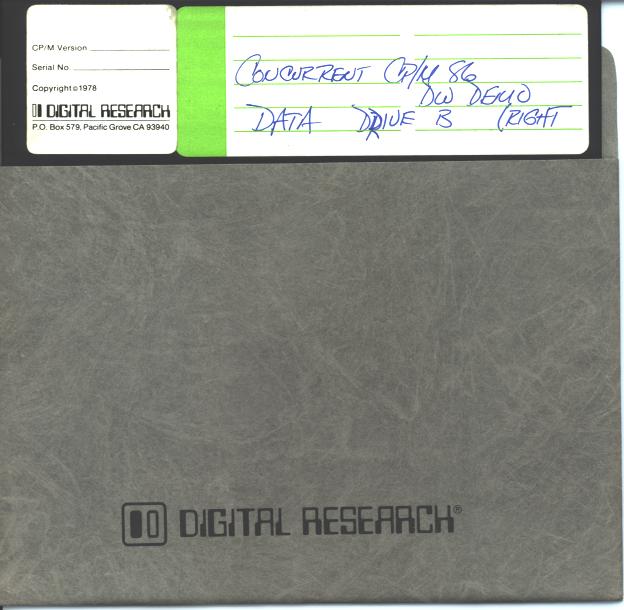 CP/M Version
Serial No.
Copyright©1978
DIGITAL RESEARCH
P.O. Box 579, Pacific Grove CA 93940
CONCURRENT CP/M 86
DW DEMO
DATA DRIVE B (RIGHT
DIGITAL RESEARCH®